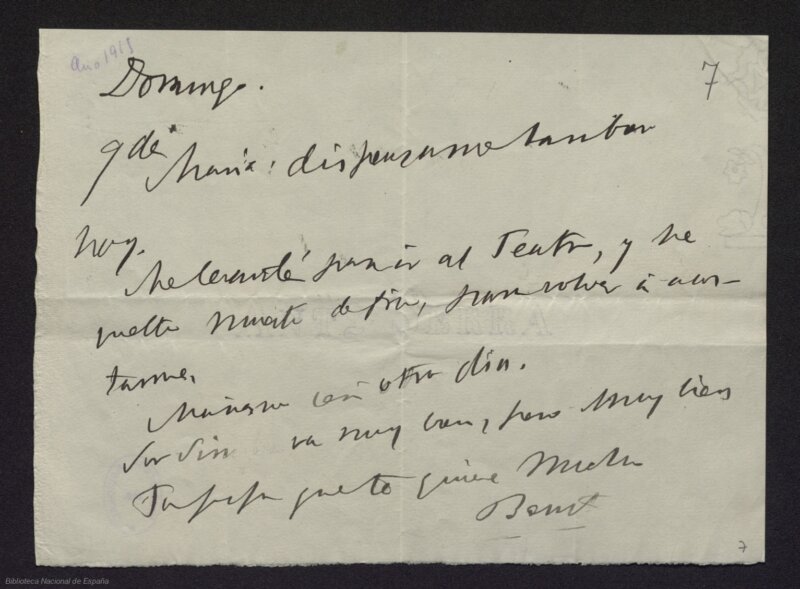 Año 1915
7
Domingo.
Qda María: dispensame tambien
hoy.
Me levanté para ir al Teatro, y he
vuelto muerto de frio, para volver á acos-
tarme.
Mañana será otro dia.
va muy bien, pero muy bien
Tu papa que te quiere mucho
Benito
7
Biblioteca Nacional de España